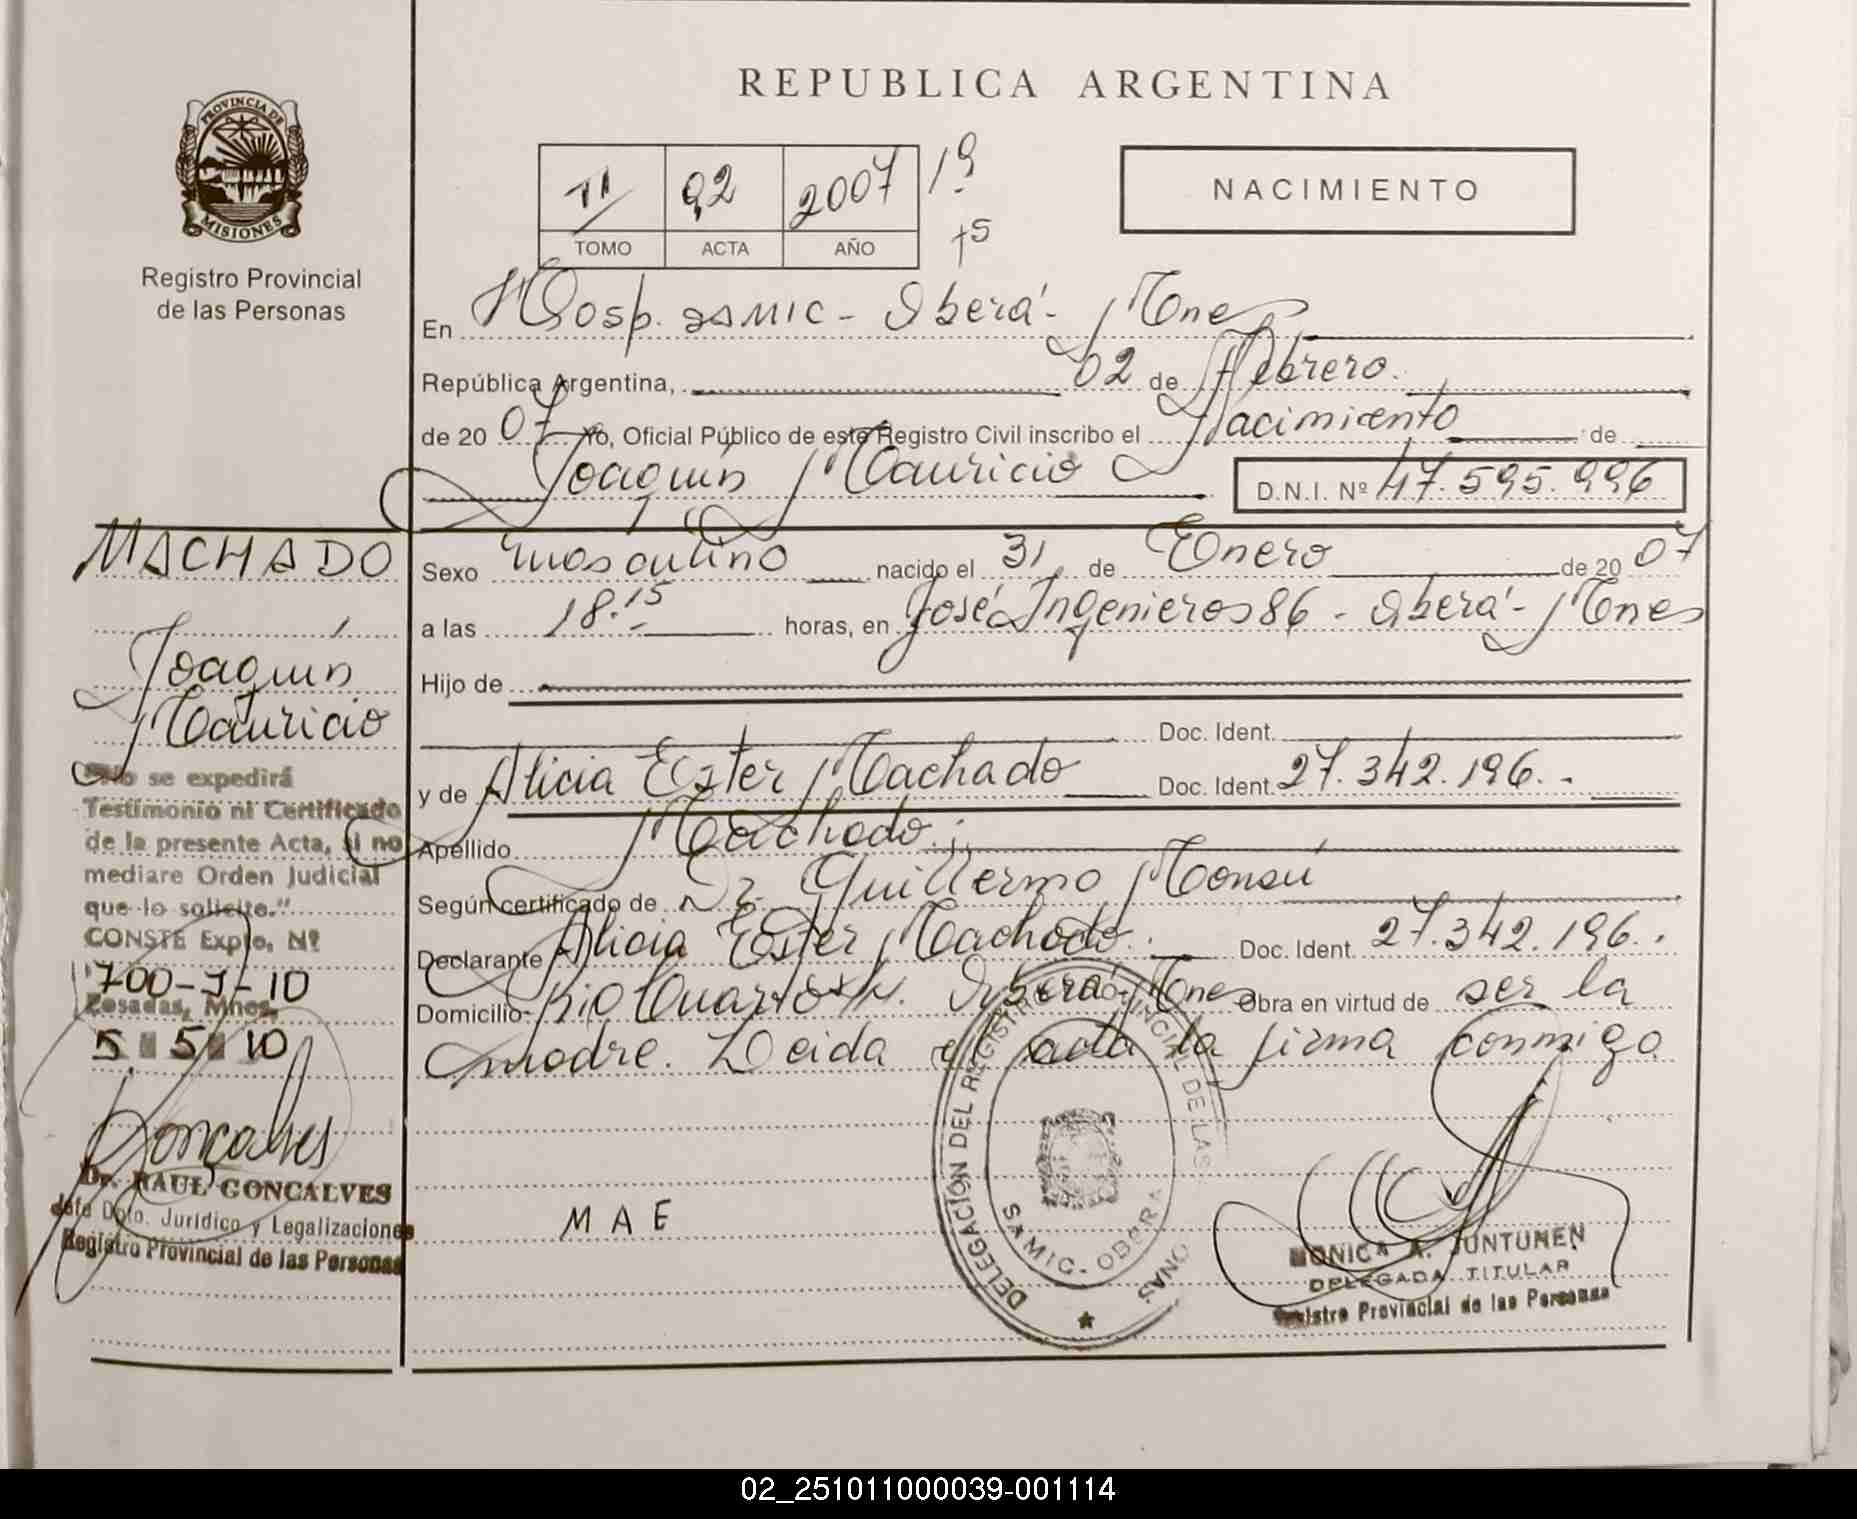 REPUBLICA ARGENTINA
PROVINCIA DE
MISIONES
Registro Provincial
de las Personas
TI 92 2007 19
TOMO ACTA AÑO
NACIMIENTO
En Hosp. SAMIC - Oberá - Mnes
República Argentina, 02 de Febrero.
de 20 07 Yo, Oficial Público de este Registro Civil inscribo el Nacimiento de
Joaquín Mauricio D.N.I. Nº 47.595.996
MACHADO
Joaquín
Mauricio
"No se expedirá
Testimonio ni Certificado
de la presente Acta, si no
mediare Orden Judicial
que lo solicite."
CONSTE Expte, Nº
700-J-10
Posadas, Mnes,
5 5 10
Goncalves
Dr. RAUL GONCALVES
Jefe Dpto. Jurídico y Legalizaciones
Registro Provincial de las Personas
Sexo masculino nacido el 31 de Enero de 20 07
a las 18.15 horas, en José Ingenieros 86 - Oberá - Mnes
Hijo de
Doc. Ident.
y de Alicia Ester Machado Doc. Ident. 27.342.196.
Apellido Machado.
Según certificado de Dr. Guillermo Monsú
Declarante Alicia Ester Machado. Doc. Ident. 27.342.196.
Domicilio Rio Cuarto S/N. Oberá Mnes Obra en virtud de ser la
madre. Leida el acta la firma conmigo
M A E
DELEGACIÓN DEL REGISTRO PROVINCIAL DE LAS
SAMIC - OBERA
MONICA A. JUNTUNEN
DELEGADA TITULAR
Registro Provincial de las Personas
02_251011000039-001114